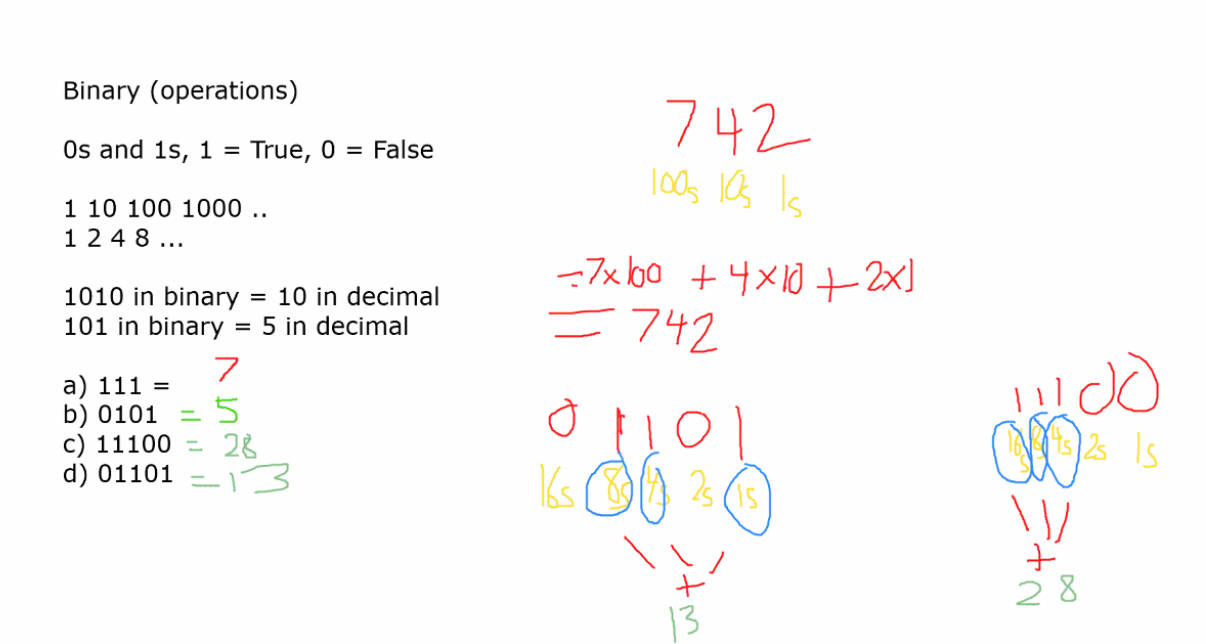 Binary (operations)
0s and 1s, 1 = True, 0 = False
1 10 100 1000 ..
1 2 4 8 ...
1010 in binary = 10 in decimal
101 in binary = 5 in decimal
a) 111 = 7
b) 0101 = 5
c) 11100 = 28
d) 01101 = 13
742
100s 10s 1s
= 7x100 + 4x10 + 2x1
= 742
01101
16s 8s 4s 2s 1s
+
13
11100
16s 8s 4s 2s 1s
+
28